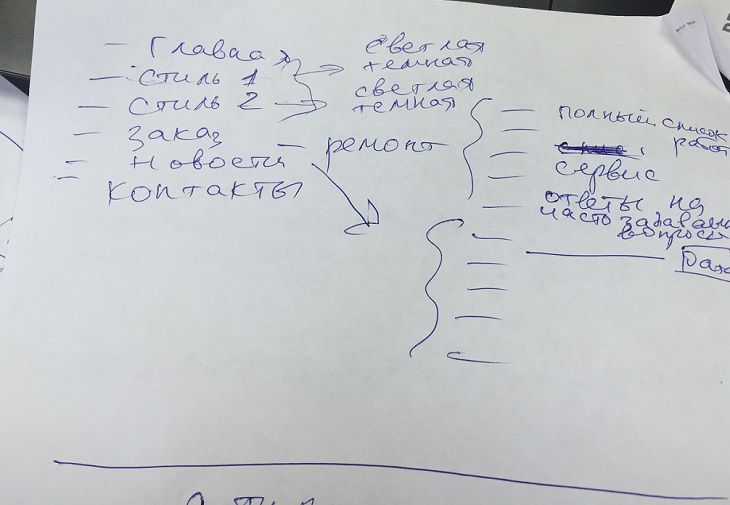 — Главная
светлая
темная
— стиль 1
— стиль 2
светлая
темная
— заказ
— ремонт
— новости
— контакты
полный список
работ
сервис
ответы на
часто
вопросы